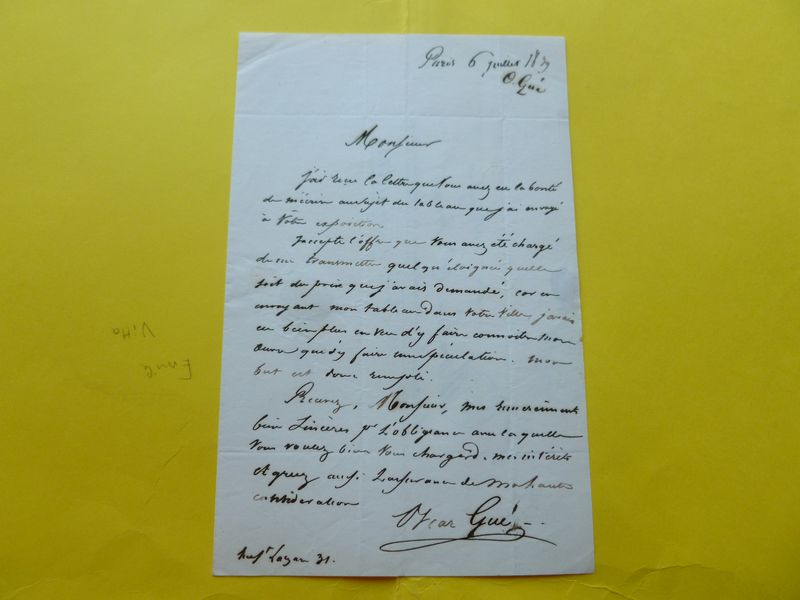 Paris 6 juillet 1839
O. Gué
Monsieur
J'ai reçu la lettre que Vous avez eu la bonté
de m'écrire au sujet du tableau que j'ai envoyé
à Votre exposition
J'accepte l'offre que Vous avez été chargé
de me transmettre quelqu'éloignée quelle
soit du prix que j'avais demandé, car en
envoyant mon tableau dans Votre Ville j'avais
eu bien plus en vue d'y faire connoitre mon
Œuvre que d'y faire une spéculation. mon
but est donc rempli.
Recevez, Monsieur, mes remerciments
bien Sincères pr L'obligeance avec laquelle
Vous voulez bien Vous charger de mes intérêts
et agréez aussi L'assurance de ma haute
considération
Oscar Gué
rue St Lazare 31.
Vitta